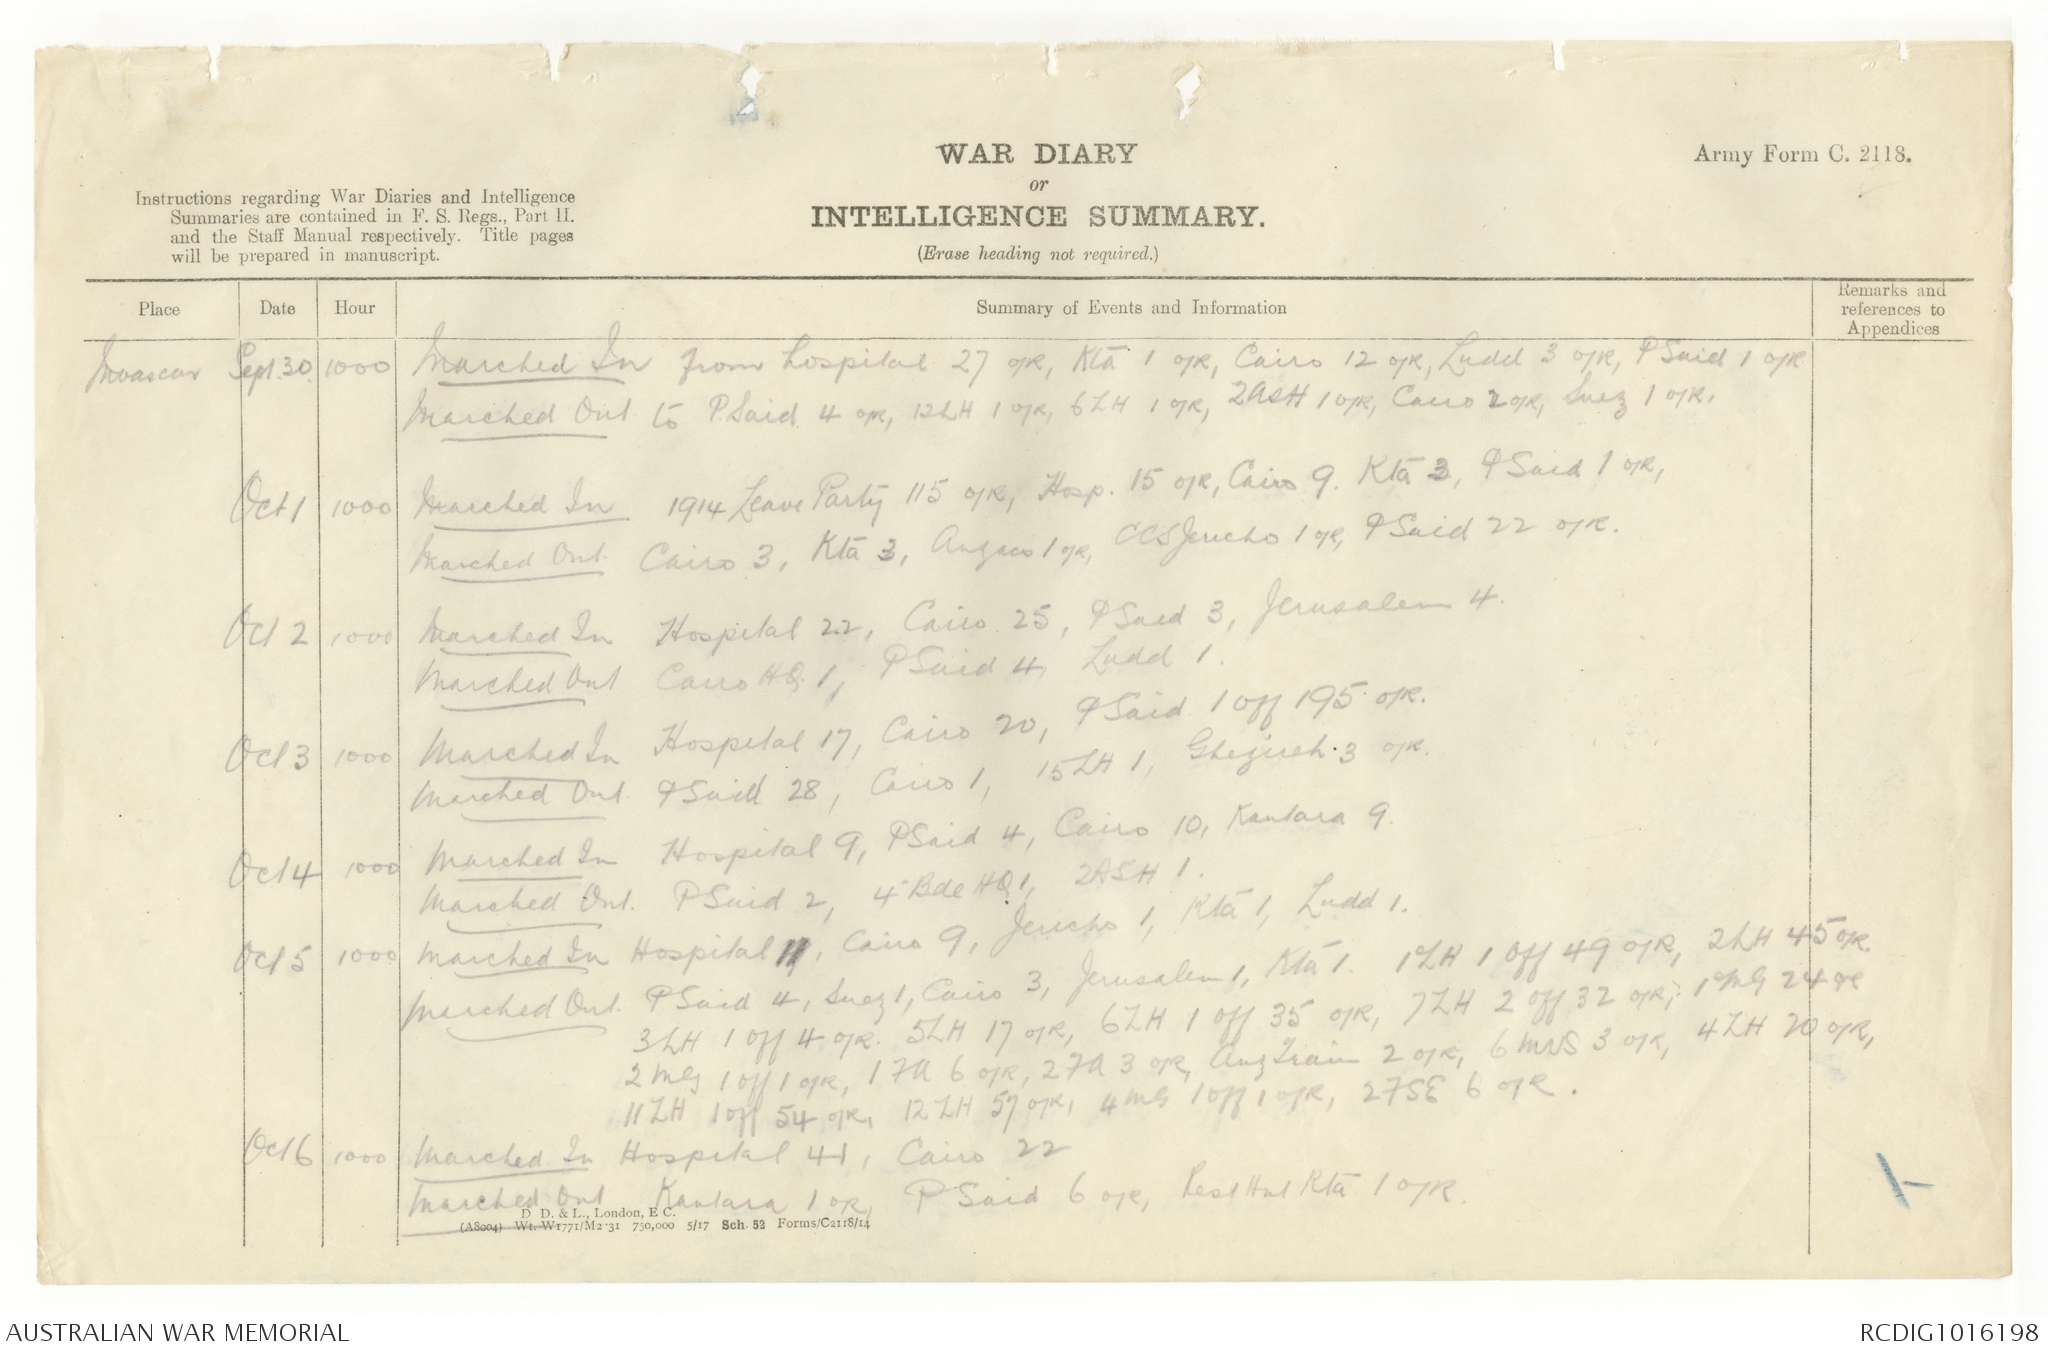 WAR DIARY
or
INTELLIGENCE SUMMARY.
(Erase heading not required.)
Army Form C. 2118.
Instructions regarding War Diaries and Intelligence
Summaries are contained in F. S. Regs., Part II.
and the Staff Manual respectively. Title pages
will be prepared in manuscript.
Place Date Hour Summary of Events and Information Remarks and references to Appendices
Moascar Sept. 30. 1000 Marched In from hospital 27 o/R, Kta 1 o/R, Cairo 12 o/R, Ludd 3 o/R, P Said 1 o/R
Marched Out to P. Said 4 o/R, 12LH 1 o/R, 6LH 1 o/R, 2ASH 1 o/R, Cairo 2 o/R, Suez 1 o/R.
Oct 1 1000 Marched In 1914 Leave Party 115 o/R, Hosp. 15 o/R, Cairo 9. Kta 3, P Said 1 o/R,
Marched Out Cairo 3, Kta 3, Anzacs 1 o/R, CCS Jericho 1 o/R, P Said 22 o/R.
Oct 2 1000 Marched In Hospital 22, Cairo 25, P Said 3, Jerusalem 4.
Marched Out Cairo HQ. 1, P Said 4, Ludd 1.
Oct 3 1000 Marched In Hospital 17, Cairo 20, P Said 1 off 195 o/R.
Marched Out. P Said 28, Cairo 1, 15LH 1, Ghezireh. 3 o/R.
Oct 4 1000 Marched In Hospital 9, P Said 4, Cairo 10, Kantara 9.
Marched Out. P Said 2, 4 Bde HQ 1, 2ASH 1.
Oct 5 1000 Marched In Hospital 11, Cairo 9, Jericho 1, Kta 1, Ludd 1.
Marched Out. P Said 4, Suez 1, Cairo 3, Jerusalem 1, Kta 1. 1LH 1 off 49 o/R, 2LH 45 o/R.
3LH 1 off 4 o/R. 5LH 17 o/R, 6LH 1 off 35 o/R, 7LH 2 off 32 o/R, 1 MG 24 o/R
2 MG 1 off 1 o/R, 1 FA 6 o/R, 2 FA 3 o/R, Anz Train 2 o/R, 6 MVS 3 o/R, 4LH 20 o/R,
11LH 1 off 54 o/R, 12LH 57 o/R, 4 MG 1 off 1 o/R, 2 FSE 6 o/R.
Oct 6 1000 Marched In Hospital 41, Cairo 22
Marched Out Kantara 1 o/R, P Said 6 o/R, Rest Kta 1 o/R.
D. D. & L., London, E.C.
(A8004) Wt. W1771/M2 31 750,000 5/17 Sch. 52 Forms/C2118/14
AUSTRALIAN WAR MEMORIAL RCDIG1016198